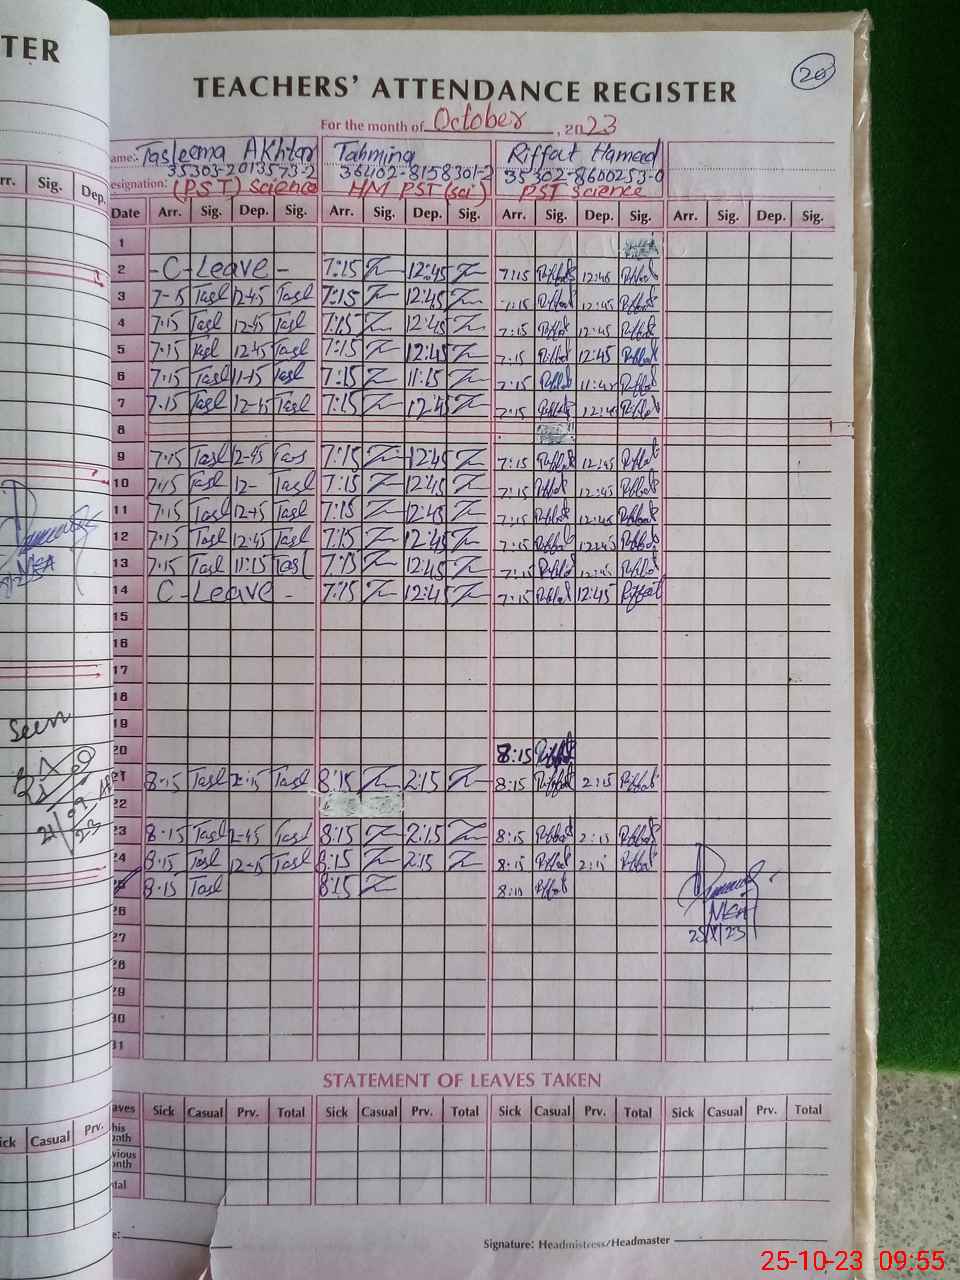 TER
20
TEACHERS' ATTENDANCE REGISTER
For the month of October, 2023
ame:- Tasleema Akhtar Tahmina Riffat Hameed
35303-2013573-2 36402-8158301-2 35302-8600253-0
esignation: (PST) Science HM PST (sci) PST Science
rr. Sig. Dep. Date Arr. Sig. Dep. Sig. Arr. Sig. Dep. Sig. Arr. Sig. Dep. Sig. Arr. Sig. Dep. Sig.
1
2 - C - Leave - 7:15 12:45 7:15 Riffat 12:45 Riffat
3 7-15 Tasl 12-45 Tasl 7:15 12:45 7:15 Riffat 12:45 Riffat
4 7.15 Tasl 12-45 Tasl 7:15 12:45 7:15 Riffat 12:45 Riffat
5 7.15 Tasl 12-45 Tasl 7:15 12:45 7:15 Riffat 12:45 Riffat
6 7.15 Tasl 11-15 Tasl 7:15 11:15 7:15 Riffat Riffat
7 7.15 Tasl 12-45 Tasl 7:15 12:45 7:15 Riffat 12:45 Riffat
8
9 7.15 Tasl 12-45 Tasl 7:15 12:45 7:15 Riffat 12:45 Riffat
10 7.15 Tasl 12- Tasl 7:15 12:45 7:15 Riffat 12:45 Riffat
11 7.15 Tasl 12-45 Tasl 7:15 12:45 7:15 Riffat 12:45 Riffat
12 7.15 Tasl 12.45 Tasl 7:15 12:45 7:15 Riffat 12:45 Riffat
13 7.15 Tasl 11:15 Tasl 7:15 12:45 7:15 Riffat 12:45 Riffat
14 C - Leave - 7:15 12:45 7:15 Riffat 12:45 Riffat
15
16
17
18
19
20 8:15 Riffat
21 8.15 Tasl Tasl 8:15 2:15 8:15 Riffat 2:15 Riffat
22
23 8.15 Tasl 2-45 Tasl 8:15 2:15 8:15 Riffat 2:15 Riffat
24 8.15 Tasl 12-15 Tasl 8:15 2:15 8:15 Riffat 2:15 Riffat
25 8.15 Tasl 8:15 Riffat
26
27
28
29
30
31
MEA
Seen
21/09
23
MEA
25/X/23
STATEMENT OF LEAVES TAKEN
ick Casual Prv. aves Sick Casual Prv. Total Sick Casual Prv. Total Sick Casual Prv. Total Sick Casual Prv. Total
his
onth
vious
onth
otal
e:
Signature: Headmistress/Headmaster
25-10-23 09:55